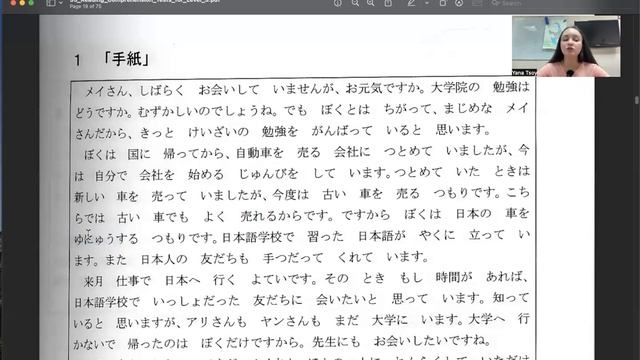 Page 19 of 75
Search
Yana Tsoy
1 「手紙」
メイさん、しばらく お会いして いませんが、お元気ですか。大学院の 勉強は
どうですか。むずかしいのでしょうね。でも ぼくとは ちがって、まじめな メイ
さんだから、きっと けいざいの 勉強を がんばって いると 思います。
ぼくは 国に 帰ってから、自動車を 売る 会社に つとめて いましたが、今
は 自分で 会社を 始める じゅんびを して います。つとめて いた ときは
新しい 車を 売って いましたが、今度は 古い 車を 売る つもりです。こち
らでは 古い 車でも よく 売れるからです。ですから ぼくは 日本の 車を
ゆにゅうする つもりです。日本語学校で 習った 日本語が やくに 立って い
ます。また 日本人の 友だちも 手つだって くれて います。
来月 仕事で 日本へ 行く よていです。その とき もし 時間が あれば、
日本語学校で いっしょだった 友だちに 会いたいと 思って います。知って
いると 思いますが、アリさんも ヤンさんも まだ 大学に います。大学へ 行
かないで 帰ったのは ぼくだけですから。先生にも お会いしたいですね。